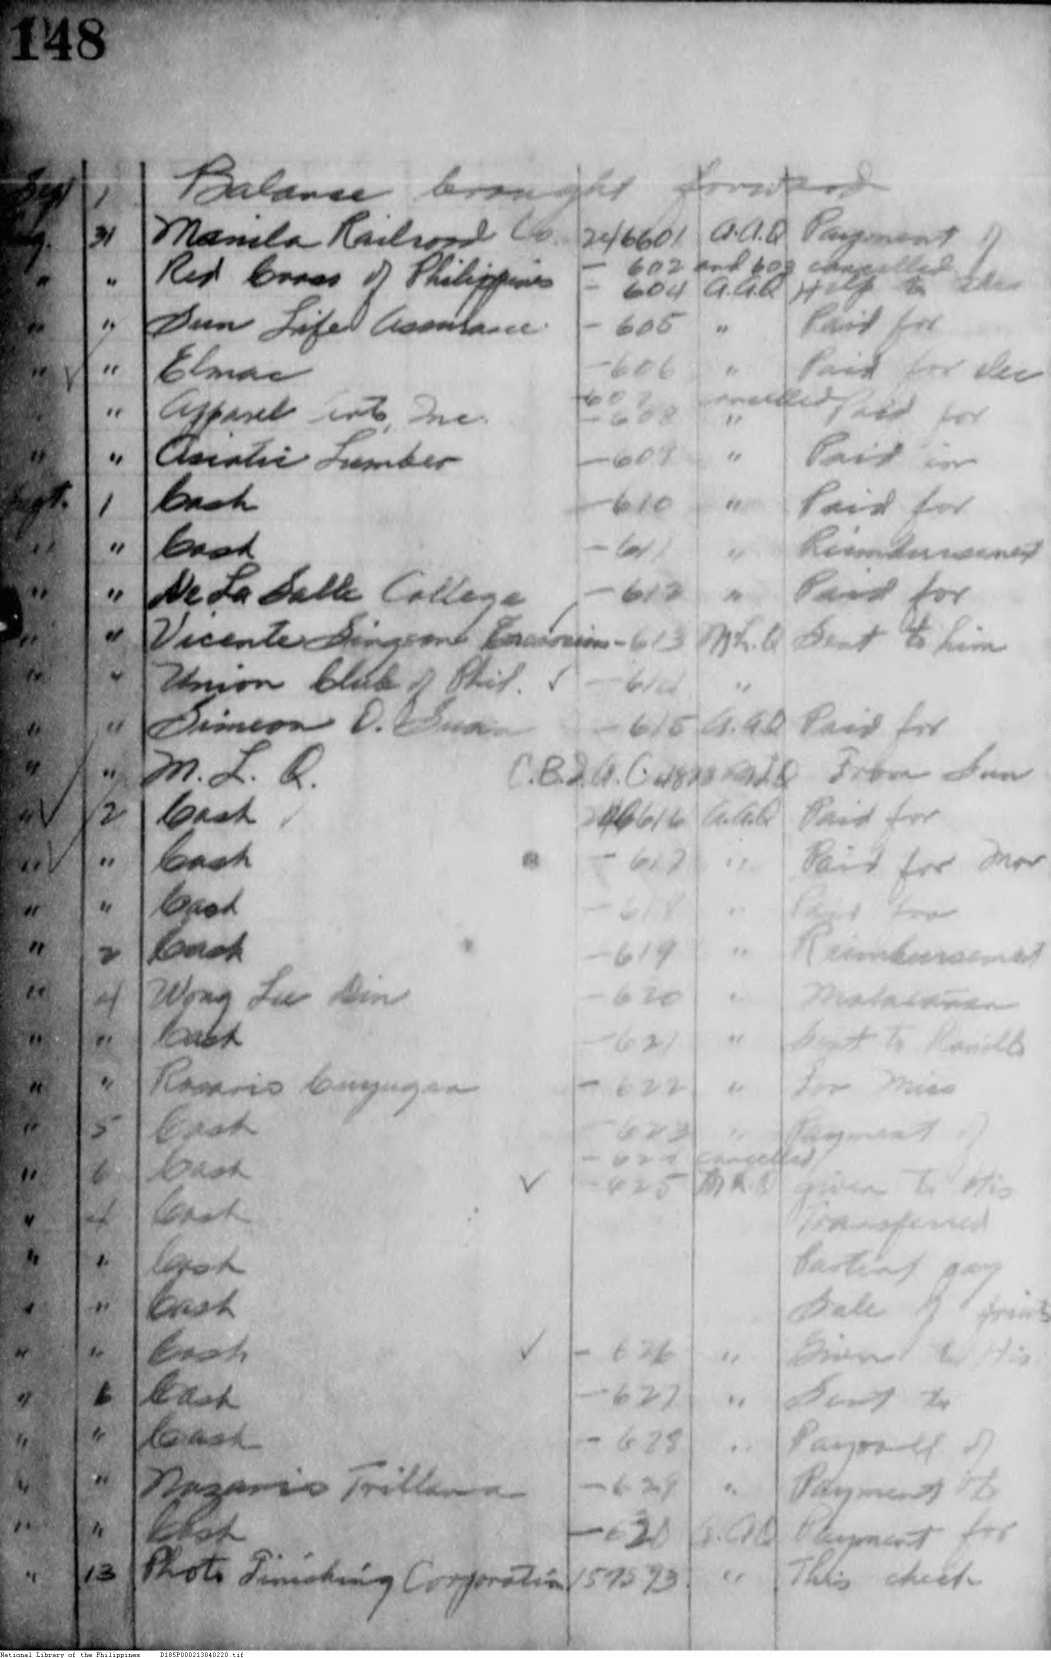 148
Sept 1 Balance brought forward
Aug. 31 Manila Railroad Co. 246601 A.A.Q Payment of
— 602 and 603 cancelled
" " Red Cross of Philippines — 604 A.A.Q Help to
" " Sun Life Assurance — 605 " Paid for
" ✓ " Elmac — 606 " Paid for
607 cancelled
" " Apparel Arts, Inc. — 608 " Paid for
" " Asiatic Lumber — 609 " Paid in
Sept. 1 Cash — 610 " Paid for
" " Cash — 611 " Reimbursement
" " De La Salle College — 612 " Paid for
" " Vicente Singson Encarnacion — 613 M.L.Q Sent to him
" " Union Club of Phil. ✓ — 614 "
" " Simeon O. — 615 A.A.Q Paid for
" " M. L. Q. M.L.Q From Sun
" ✓ 2 Cash 246616 A.A.Q Paid for
" ✓ " Cash — 617 " Paid for
" " Cash — 618 " Paid for
" 2 Cash — 619 " Reimbursement
" 4 Wong — 620 " Malacañan
" " Cash — 621 " Sent to
" " Rosario Cuyugan — 622 " For Miss
" 5 Cash — 623 " Payment of
— 624 cancelled
" 6 Cash ✓ — 625 M.L.Q given to His
" 4 Cash Transferred
" " Cash Partial pay
" " Cash Sale of
" " Cash ✓ — 626 " Given to His
" 6 Cash — 627 " Sent to
" " Cash — 628 " Payroll of
" " Nazario Trillana — 629 " Payment to
" " Cash — 630 A.A.Q Payment for
" 13 Photo Finishing Corporation 157573 " This check
National Library of the Philippines D185P000213040220.tif